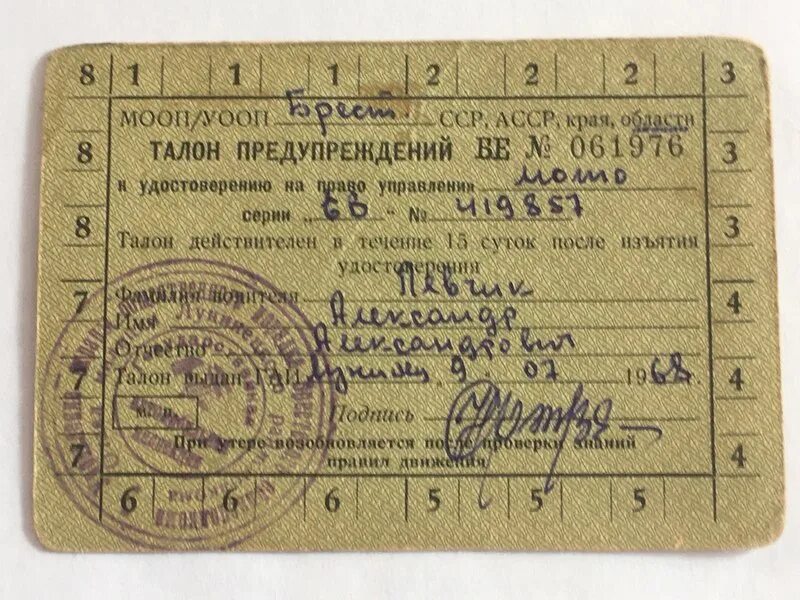 8 1 1 1 2 2 2 3
МООП/УООП Брест ССР, АССР, края, области
8 ТАЛОН ПРЕДУПРЕЖДЕНИЙ БЕ № 061976 3
к удостоверению на право управления мото
8 серии „БВ" № 419857 3
Талон действителен в течение 15 суток после изъятия
удостоверения
7 Фамилия водителя Певчик 4
Имя Александр
Отчество Александрович
7 Талон выдан ГАИ Лунинец 9 07 1968 г. 4
м. п. Подпись
При утере возобновляется после проверки знаний
7 правил движения 4
6 6 6 5 5 5